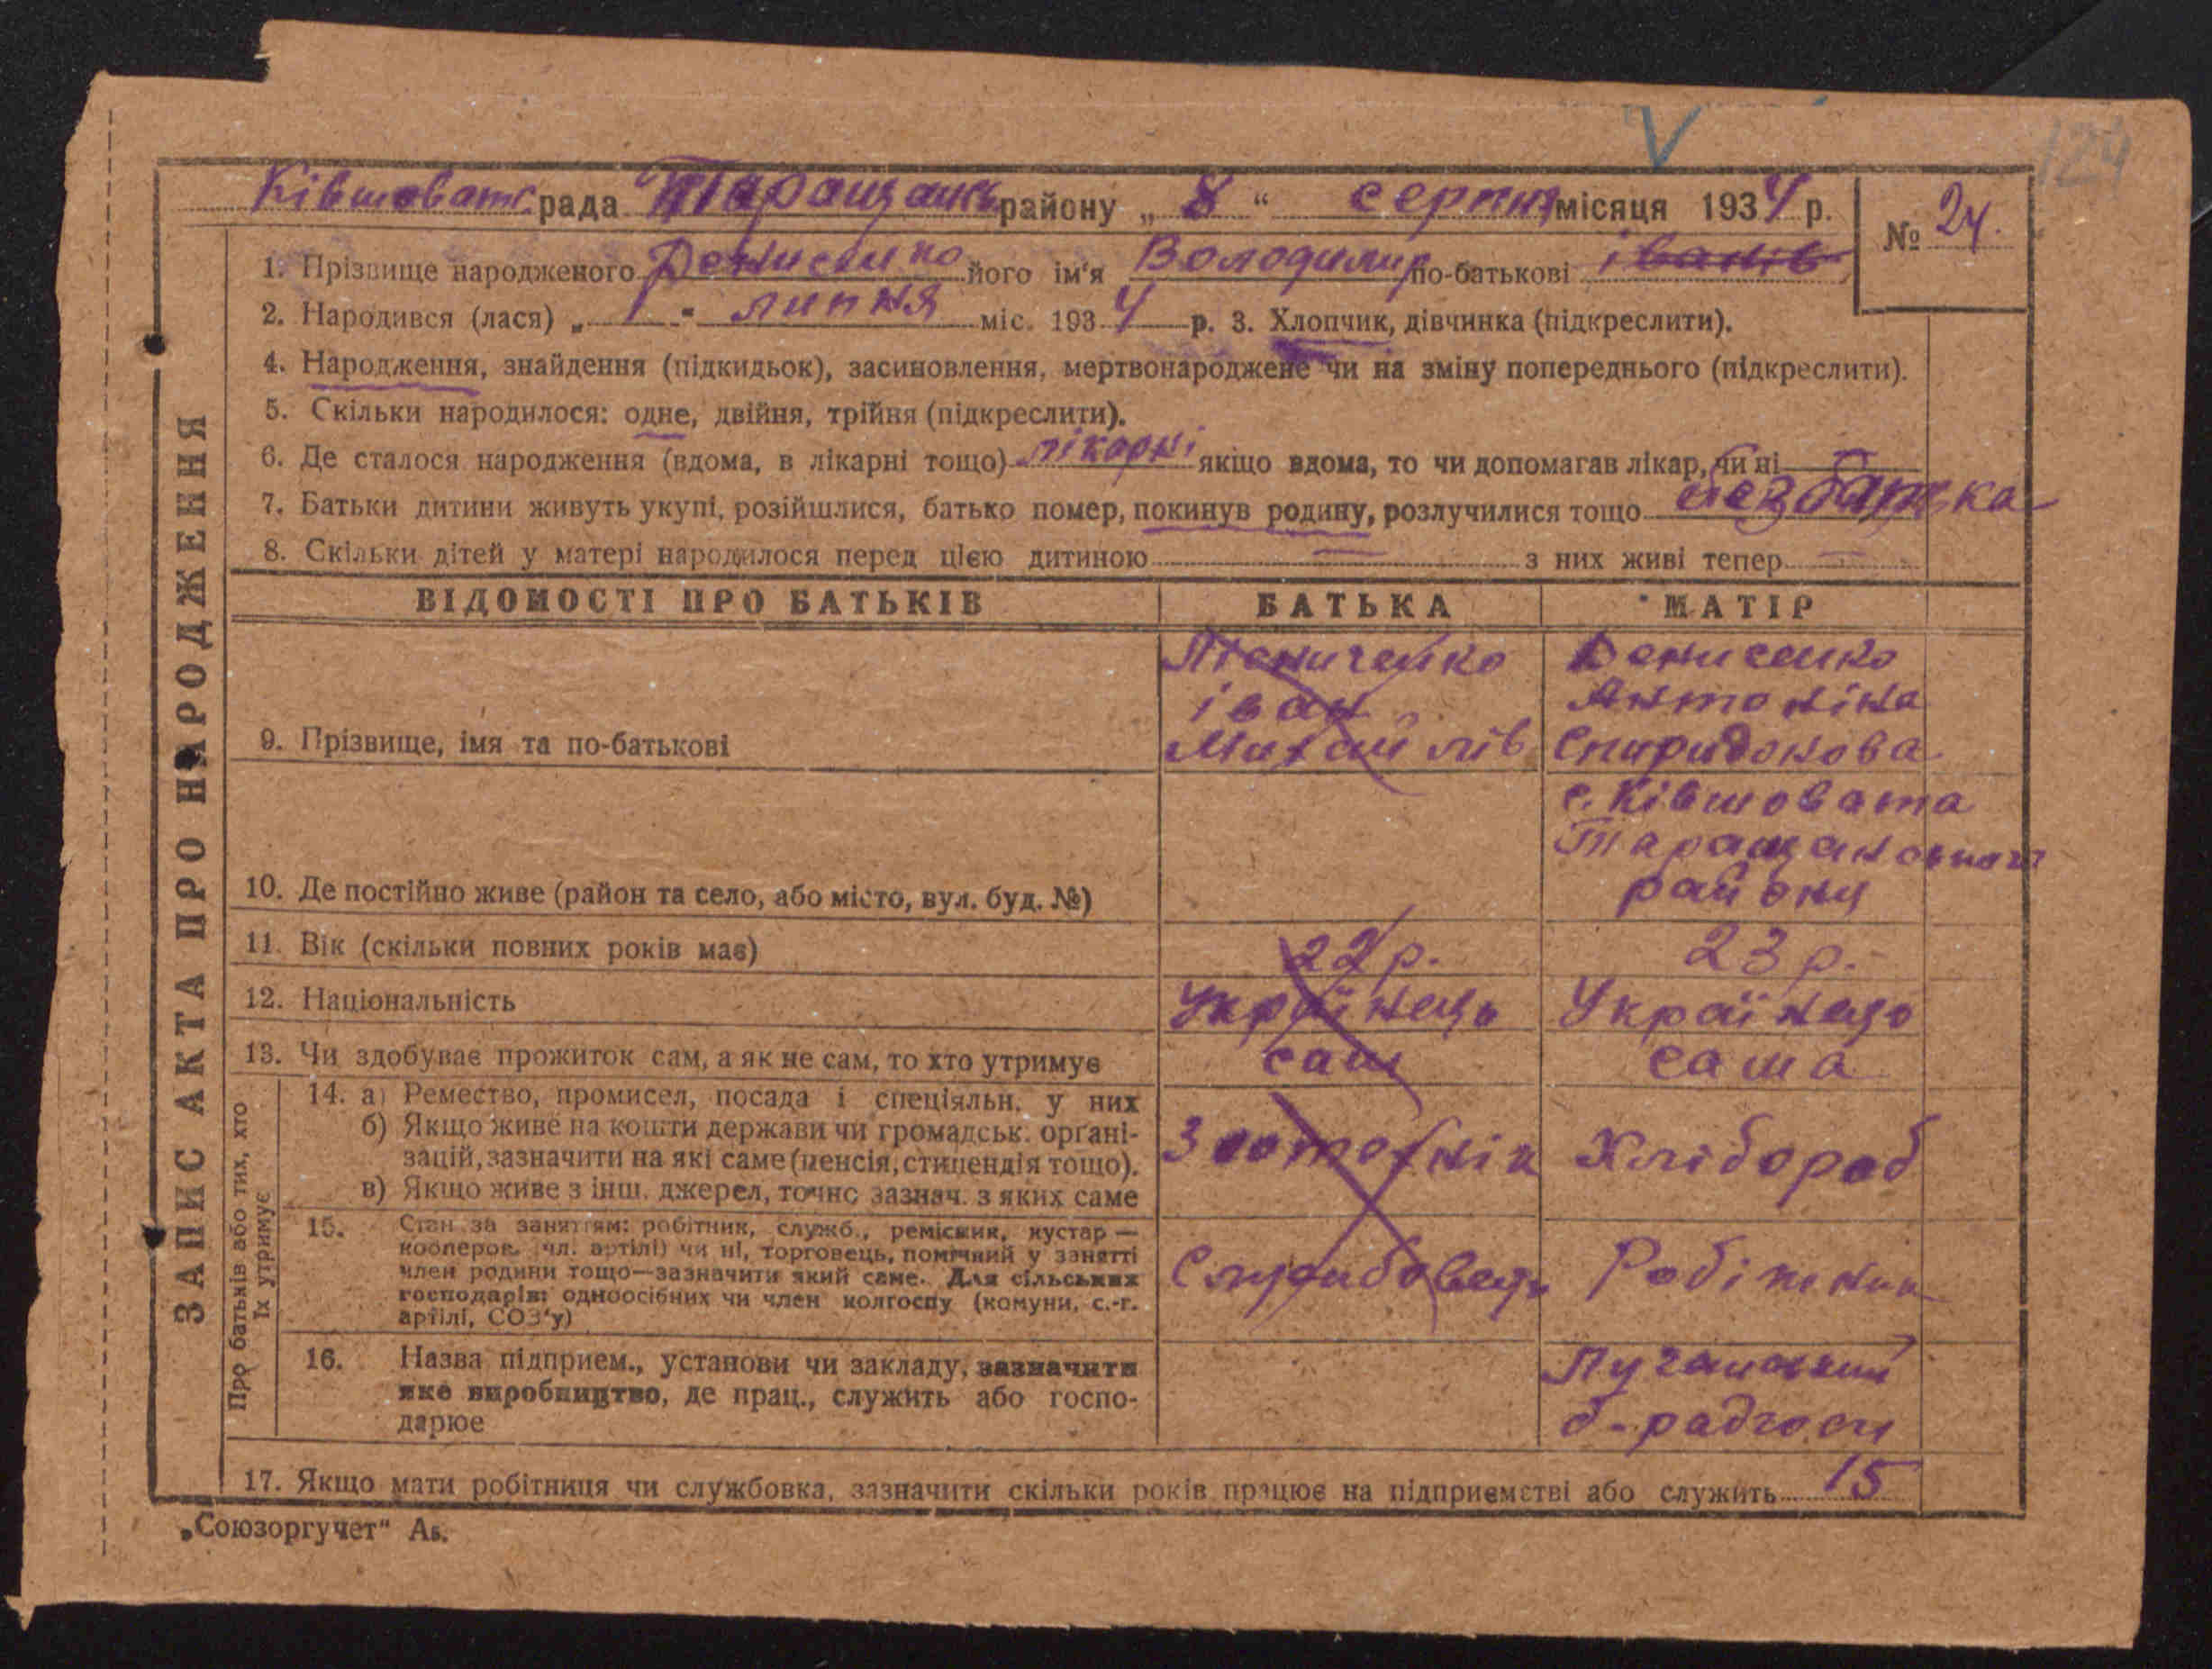 V
124
Ківшоватс. рада Таращанс. району „ 8 “ серпня місяця 1934 р.
№ 24.
1. Прізвище народженого Денисенко його ім'я Володимир по-батькові Іванів
2. Народився (лася) „ 1 " липня міс. 1934 р. 3. Хлопчик, дівчинка (підкреслити).
4. Народження, знайдення (підкидьок), засиновлення, мертвонароджене чи на зміну попереднього (підкреслити).
5. Скільки народилося: одне, двійня, трійня (підкреслити).
6. Де сталося народження (вдома, в лікарні тощо) лікарні якщо вдома, то чи допомагав лікар, чи ні —
7. Батьки дитини живуть укупі, розійшлися, батько помер, покинув родину, розлучилися тощо без батька
8. Скільки дітей у матері народилося перед цією дитиною = з них живі тепер =
ВІДОМОСТІ ПРО БАТЬКІВ БАТЬКА МАТІР
9. Прізвище, імя та по-батькові
Іван
Михайлів
Денисенко
Антоніна
Спиридонова
10. Де постійно живе (район та село, або місто, вул. буд. №)
с. Ківшовата
Таращанського
району
11. Вік (скільки повних років має) 22 р. 23 р.
12. Національність Українець Українець
13. Чи здобуває прожиток сам, а як не сам, то хто утримує сам сама
Про батьків або тих, хто
їх утримує
14. а) Ремество, промисел, посада і спеціяльн. у них
б) Якщо живе на кошти держави чи громадськ. органі-
зацій, зазначити на які саме (пенсія, стипендія тощо).
в) Якщо живе з інш. джерел, точно зазнач. з яких саме
Зоотехнік Хлібороб
15. Стан за заняттям: робітник, служб., реміскик, кустар —
кооперов. чл. артілі) чи ні, торговець, помічний у занятті
член родини тощо—зазначити який саме. Для сільських
господарів: одноосібних чи член колгоспу (комуни, с.-г.
артілі, СОЗ'у)
Службовець Робітник
16. Назва підприєм., установи чи закладу, зазначити
яке виробництво, де прац., служить або госпо-
дарює
б-радгосп
17. Якщо мати робітниця чи службовка, зазначити скільки років працює на підприємстві або служить 15
ЗАПИС АКТА ПРО НАРОДЖЕННЯ
„Союзоргучет" Аб.